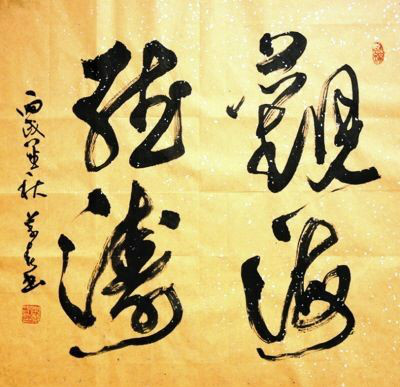 觀海
聽濤
丙戌年秋 書